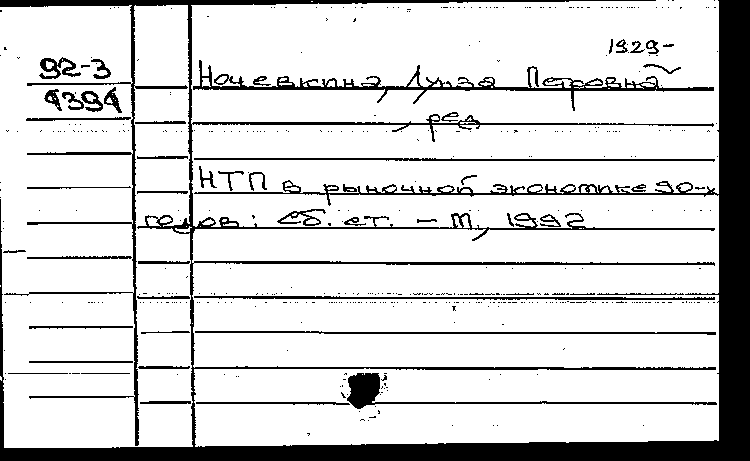 1929-
92-3
4394
Ночевкина, Луиза Петровна
, ред
НТП в рыночной экономике 90-х
годов: Сб. ст. - М, 1992